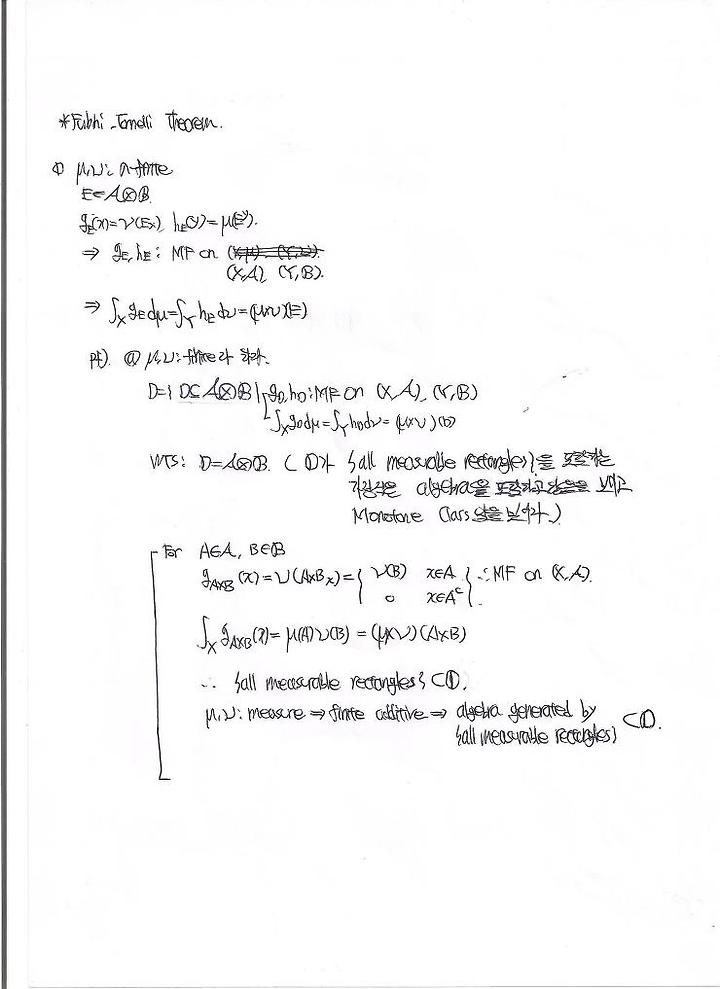 *Fubini-Tonelli Theorem.
① μ, ν: σ-finite
E∈A⊗B.
g_E(x)=ν(E_x), h_E(y)=μ(E^y).
⇒ g_E, h_E: MF on
(X,A), (Y,B).
⇒ ∫_X g_E dμ=∫_Y h_E dν=(μ×ν)(E)
pf). ⓐ μ, ν: finite라 하자.
D={ D⊂A⊗B | g_D, h_D: MF on (X,A), (Y,B)
∫_X g_D dμ=∫_Y h_D dν=(μ×ν)(D)
WTS: D=A⊗B. ( D가 {all measurable rectangles}을 포함하는
가장작은 algebra을 포함하고 있음을 보이고
Monotone Class 임을 보이자.)
For A∈A, B∈B
g_{A×B}(x)=ν(A×B_x)={ ν(B) x∈A
0 x∈A^c } ∴ MF on (X,A).
∫_X g_{A×B}(x)=μ(A)ν(B)=(μ×ν)(A×B)
∴ {all measurable rectangles}⊂D.
μ, ν: measure ⇒ finite additive ⇒ algebra generated by ⊂D.
{all measurable rectangles}